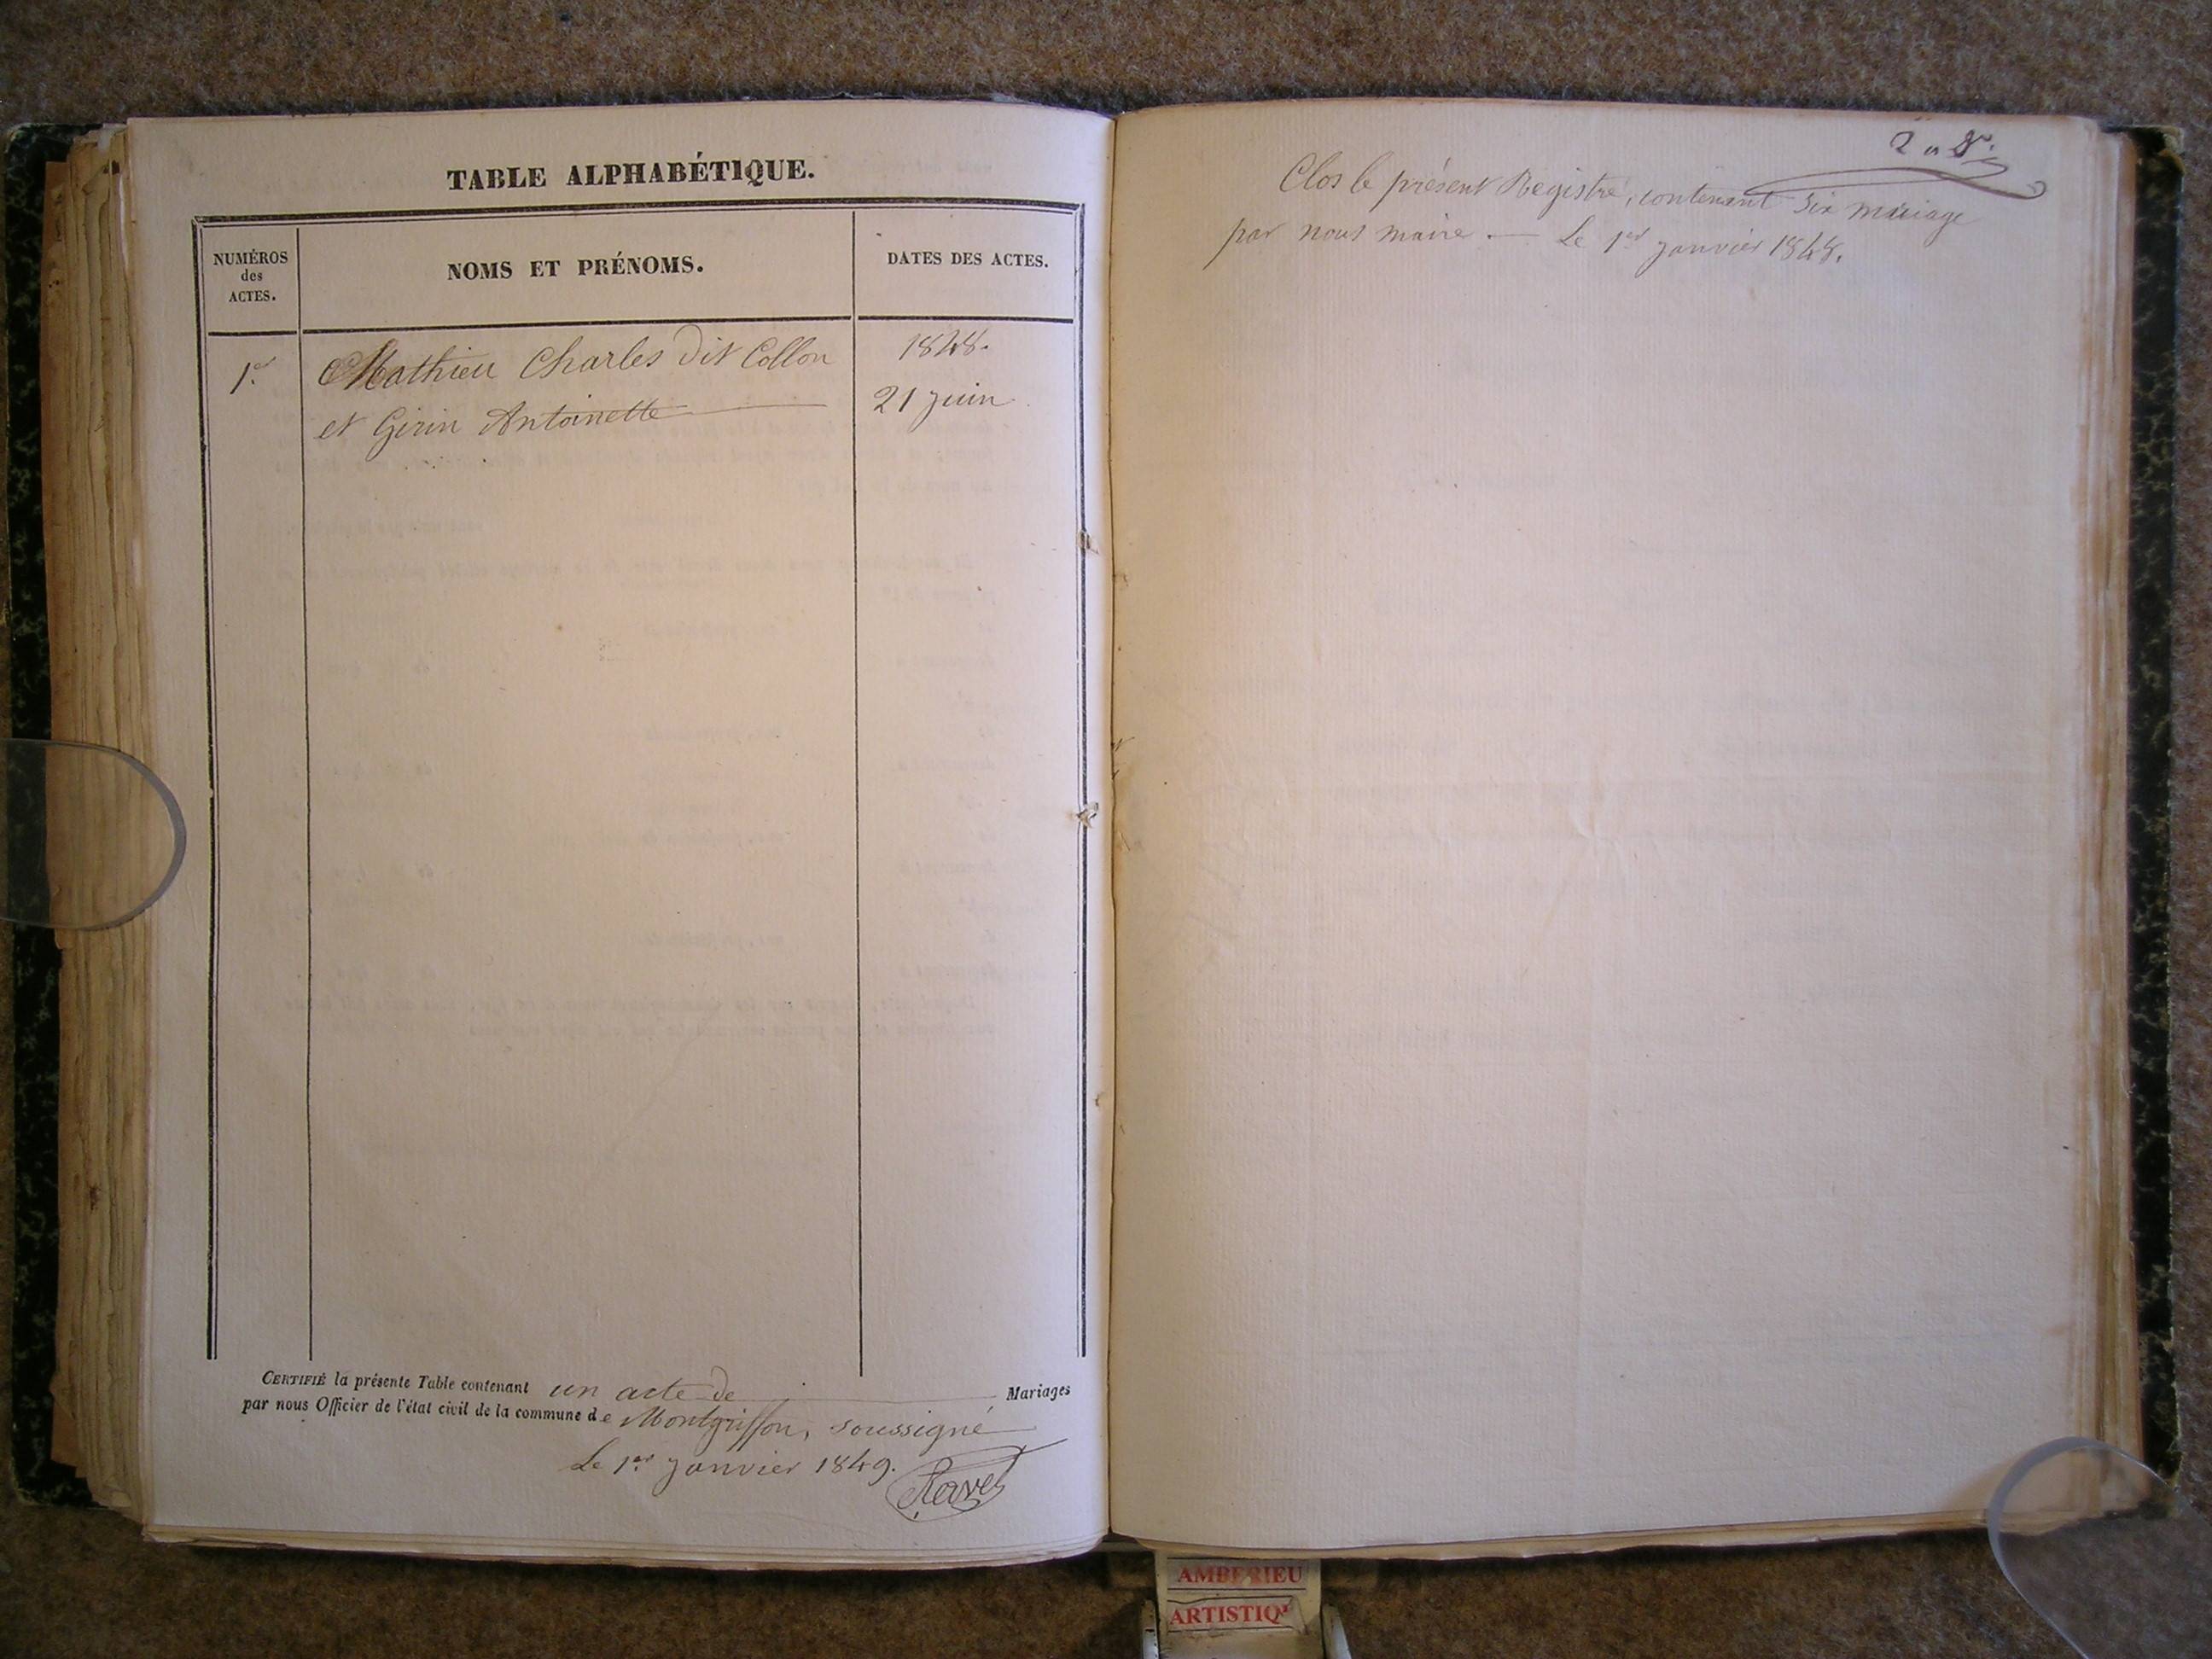 TABLE ALPHABÉTIQUE.
NUMÉROS
des
ACTES.
NOMS ET PRÉNOMS.
DATES DES ACTES.
1er
Mathieu Charles dit Collon
et Girin Antoinette
1848.
21 juin
CERTIFIÉ la présente Table contenant un acte de Mariages
par nous Officier de l'état civil de la commune de Montgriffon, soussigné
Le 1er Janvier 1849.
Ravet
Clos le présent Registre, contenant six mariage
par nous maire. — Le 1er janvier 1848.
AMBERIEU
ARTISTIQ